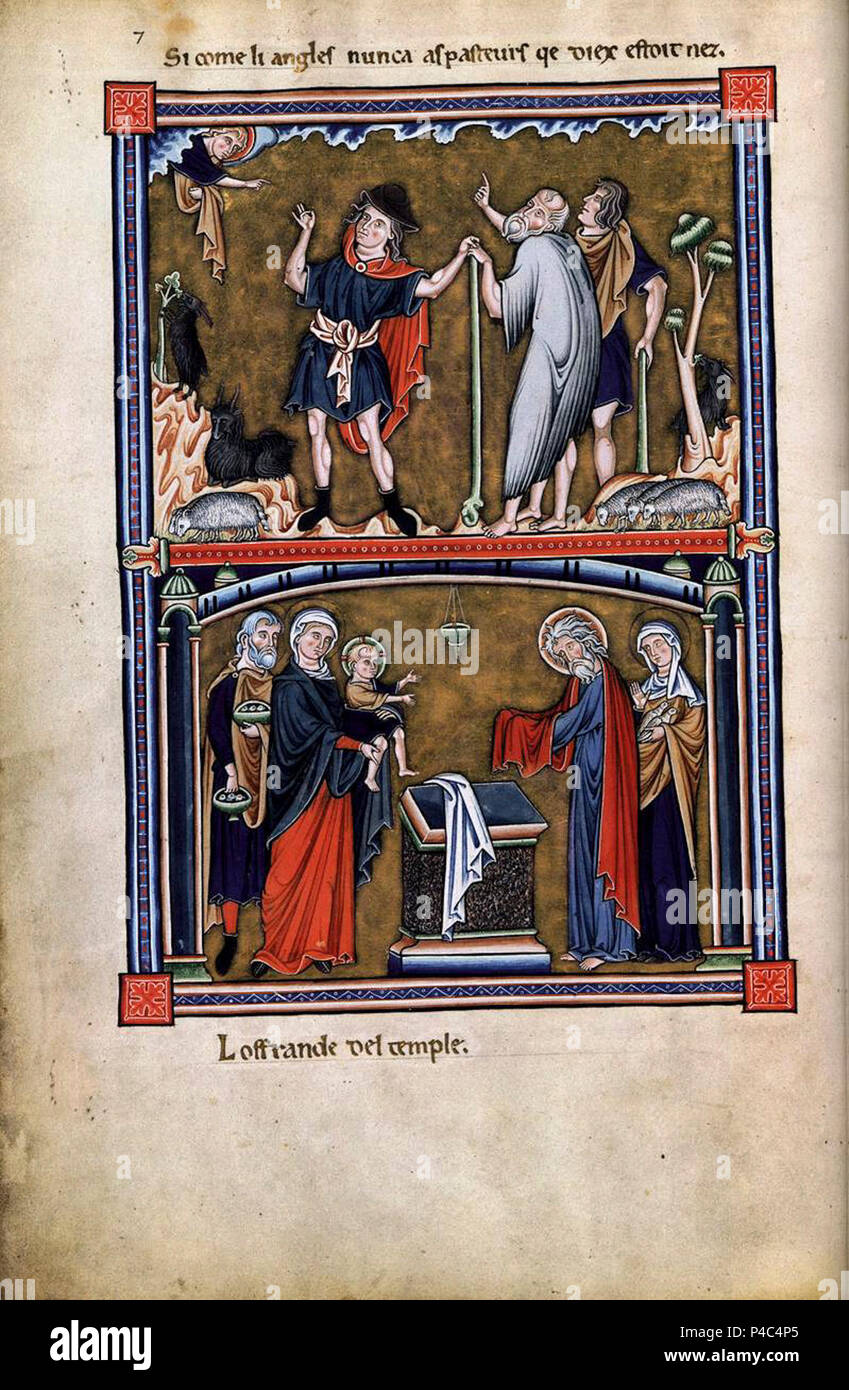 7
Si come li angles nunca as pasteurs qe diex estoit nez.
L offrande del temple.
alamy
Image ID: P4C4P5
www.alamy.com